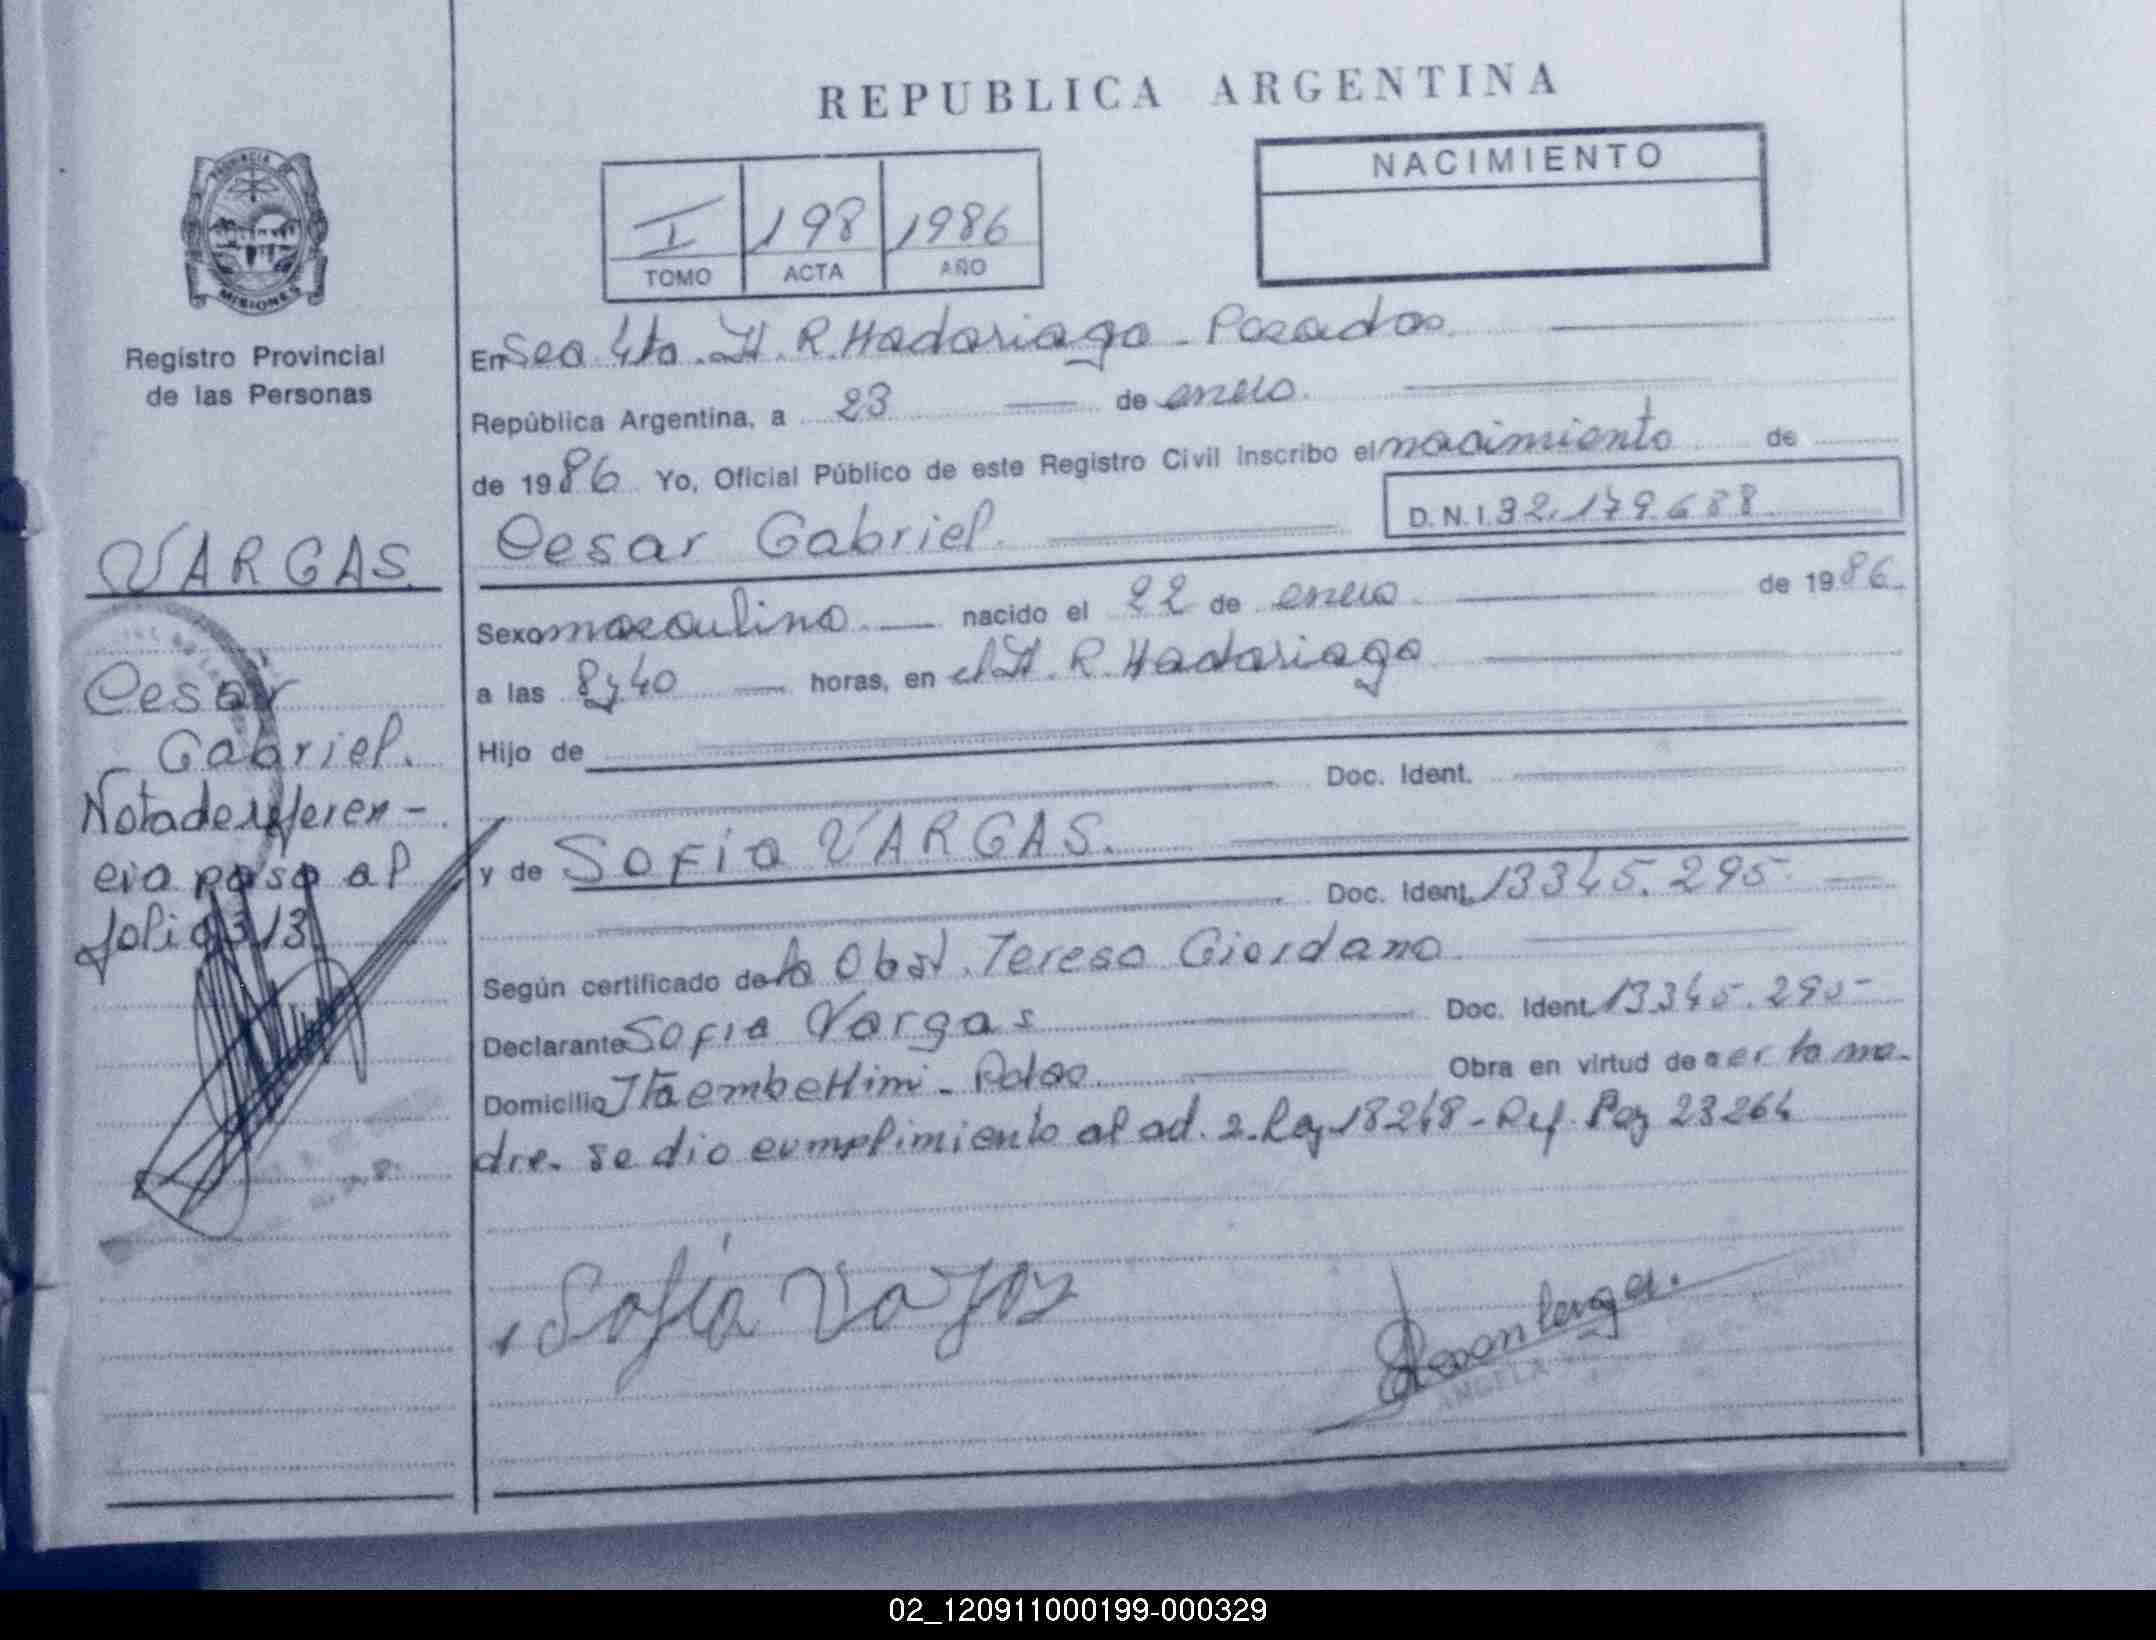 REPUBLICA ARGENTINA
PROVINCIA
MISIONES
Registro Provincial
de las Personas
I 198 1986
TOMO ACTA AÑO
NACIMIENTO
En Sec 4ta. H. R. Madariaga - Posadas
República Argentina, a 23 de enero
de 1986 Yo, Oficial Público de este Registro Civil inscribo el nacimiento de
Cesar Gabriel. D.N.I. 32.179.688
Sexo masculino nacido el 22 de enero de 1986
a las 8 y 40 horas, en el H. R. Madariaga
Hijo de
Doc. Ident.
y de Sofia VARGAS.
Doc. Ident. 13345.295
Según certificado de la Obst. Teresa Giordano
Declarante Sofia Vargas Doc. Ident. 13.345.295
Domicilio Itaembe Mini - Pdas Obra en virtud de ser la ma-
dre. se dio cumplimiento al ad. 2. Ley 18248 - Ref. Ley 23264
Sofía Vargas
ANGELA
VARGAS
Cesar
Gabriel.
Nota de referen-
cia paso al
folio 313
02_120911000199-000329